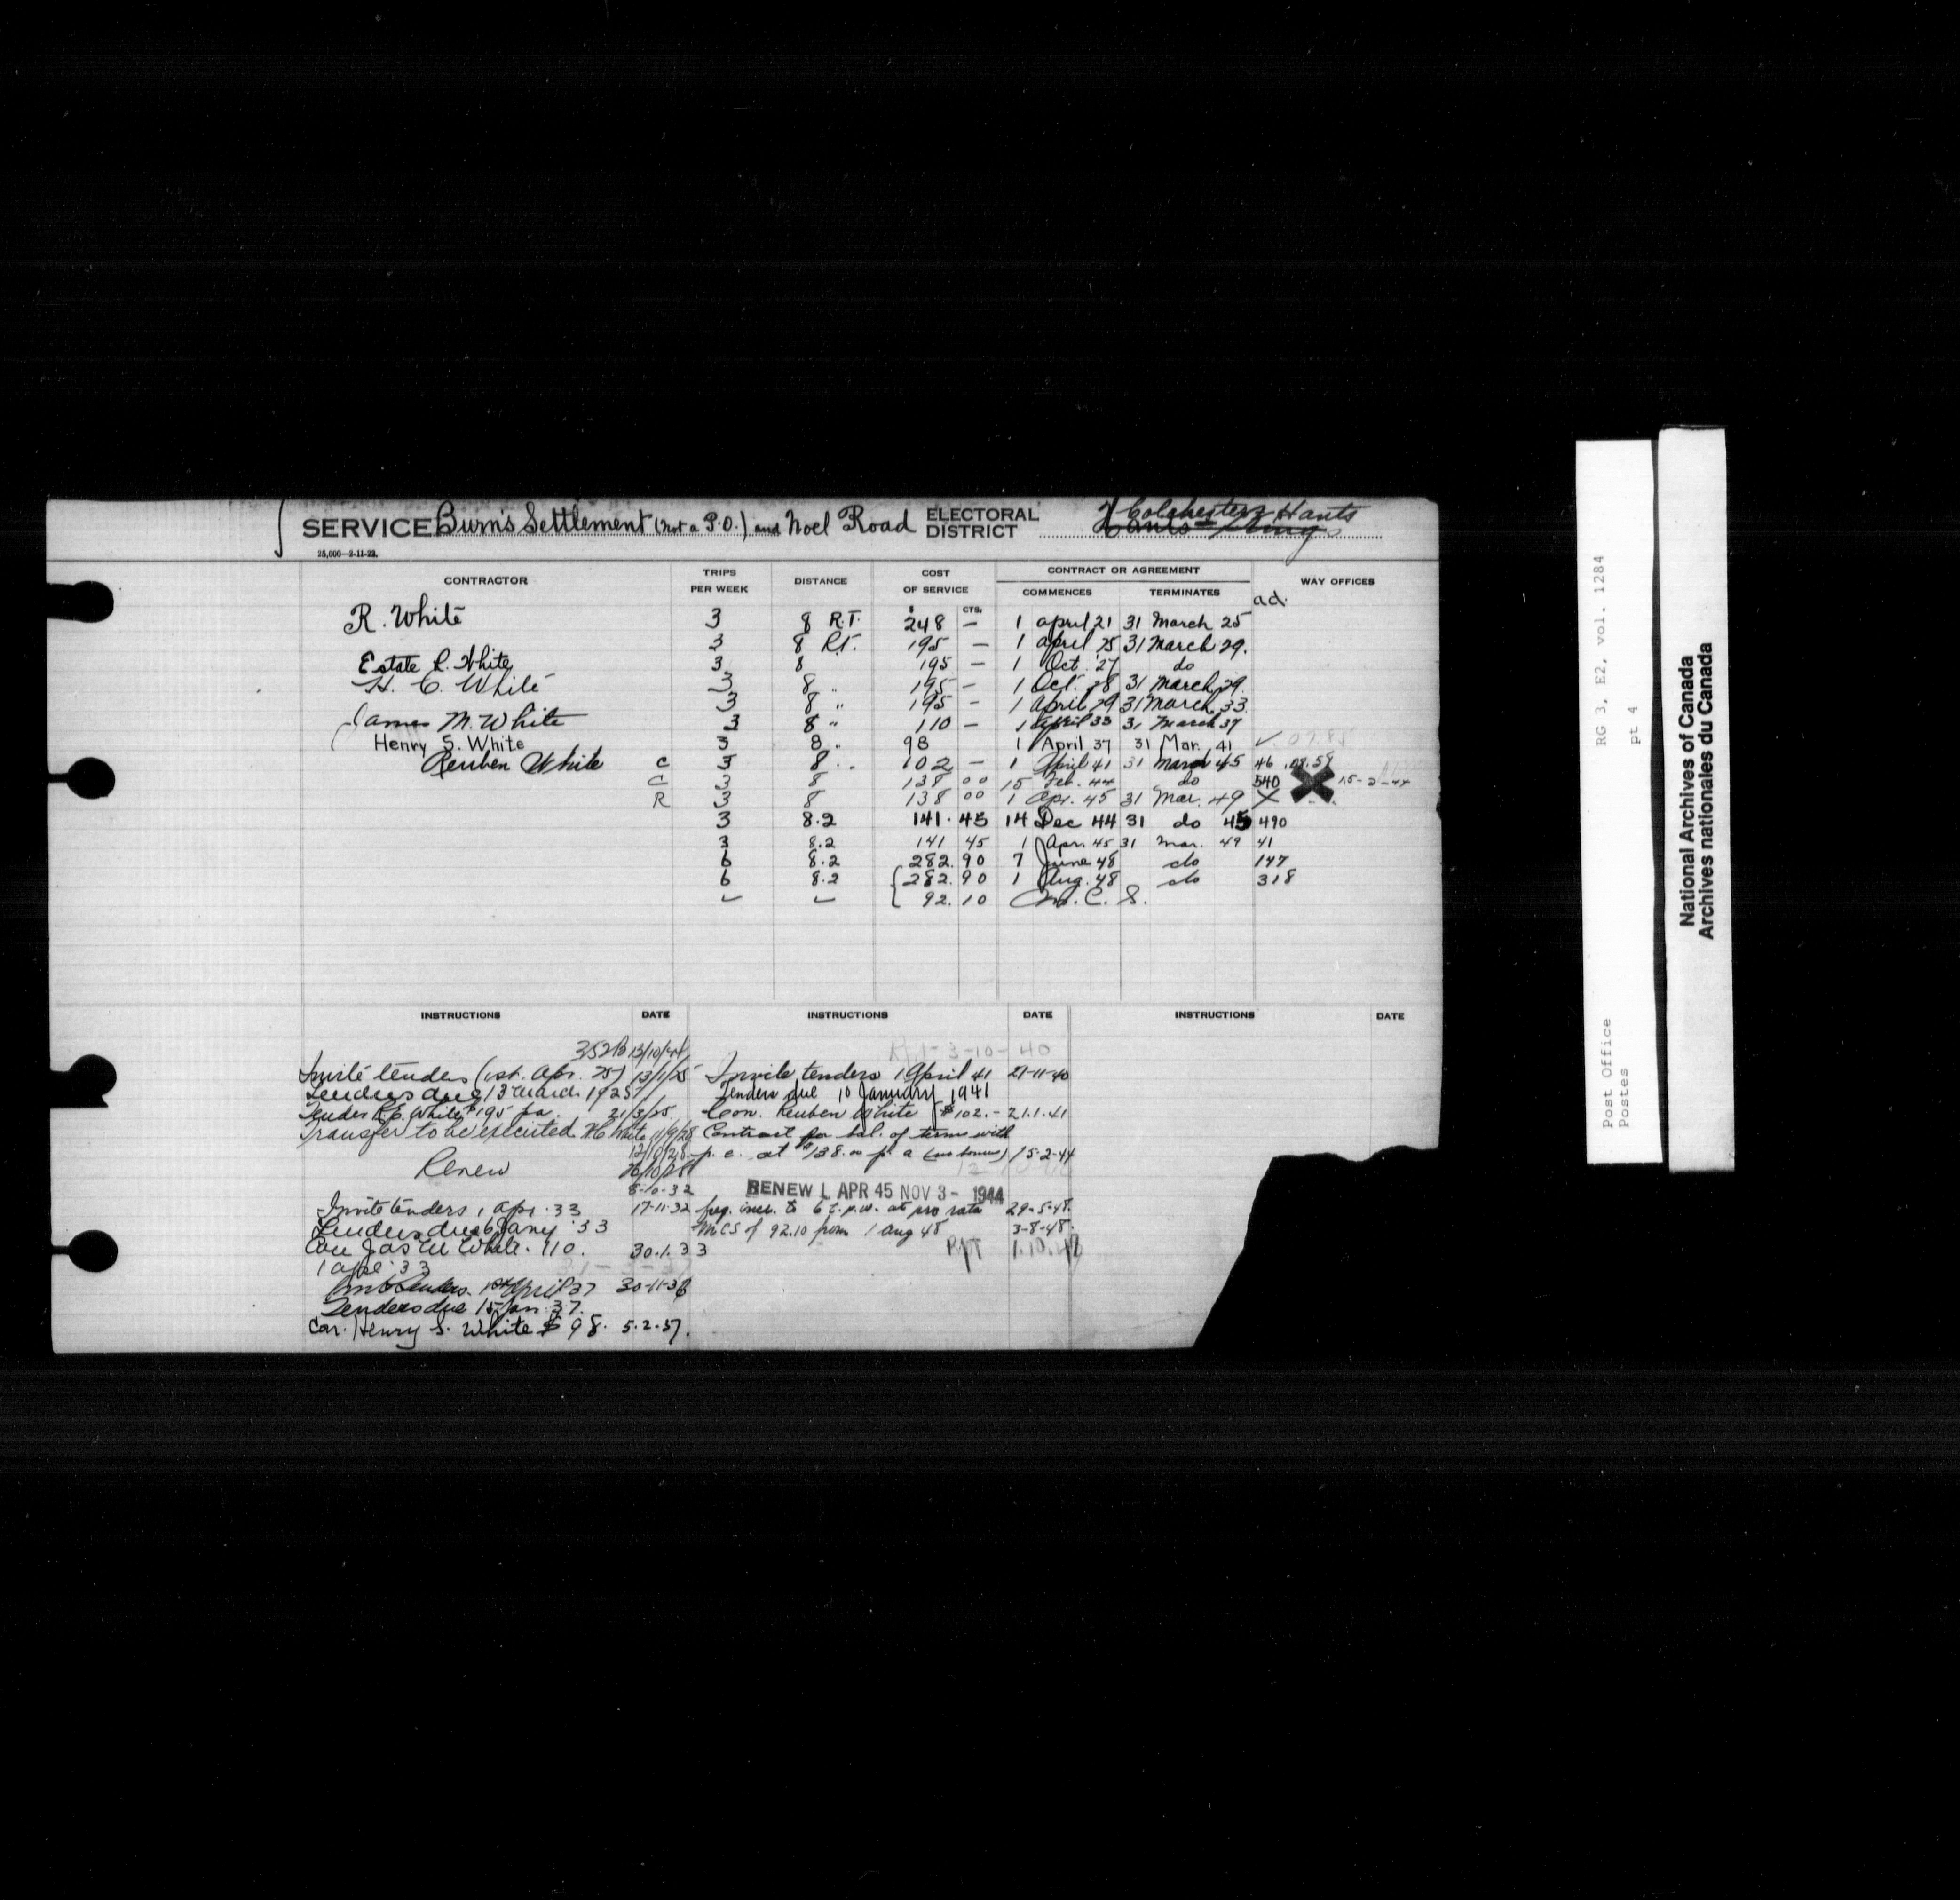 SERVICE Burn's Settlement (not a P.O.) and Noel Road ELECTORAL DISTRICT Colchester Hants
Hants - Kings
25,000—2-11-22.
CONTRACTOR TRIPS PER WEEK DISTANCE COST OF SERVICE CONTRACT OR AGREEMENT WAY OFFICES
COMMENCES TERMINATES
$ CTS. ad.
R. White 3 8 R.T. 248 — 1 April 21 31 March 25
3 8 R.T. 195 — 1 April 25 31 March 29.
Estate R. White 3 8 195 — 1 Oct. '27 do
H. C. White 3 8 " 195 — 1 Oct. 28 31 March 29.
3 8 " 195 — 1 April 29 31 March 33
James M. White 3 8 " 110 — 1 April 33 31 March 37
Henry S. White 3 8 " 98 1 April 37 31 Mar. 41
Reuben White C 3 8 " 102 — 1 April 41 31 March 45 46
C 3 8 138 00 15 Feb. 44 do 540 15-2-44
R 3 8 138 00 1 Apr. 45 31 Mar. 49 X
3 8.2 141.45 14 Dec 44 31 do 45 490
3 8.2 141 45 1 Apr. 45 31 Mar. 49 41
6 8.2 282.90 7 June 48 do 147
6 8.2 282.90 1 Aug. 48 do 318
92.10 M.C.S.
INSTRUCTIONS DATE INSTRUCTIONS DATE INSTRUCTIONS DATE
Invite tenders (1st. Apr. 25) 13/1/25
Tenders due 13 March 1925
Tender R.E. White $195 pa. 21/3/25
Transfer to be executed H C White 11/9/28
Renew
8-10-32
Invite tenders 1 Apr. 33 17-11-32
Tenders due 6 Jany 33
Con Jas M White. 110. 30.1.33
1 Apl. 33
Inv. Tenders. 1st April 37 30-11-36
Tenders due 15 Jan. 37.
Con. Henry S. White $98. 5.2.37.
3-10-40
Invite tenders 1 April 41 27-11-40
Tenders due 10 January 1941
Con. Reuben White $102.- 21.1.41
Contract for bal. of terms with
p.c. at $138.00 p a (no bonus) 15-2-44
RENEW 1 APR 45 NOV 3 - 1944
freq. incr. to 6 t.p.w. at pro rata 29-5-48.
MCS of 92.10 from 1 Aug 48 3-8-48.
Post Office
Postes
RG 3, E2, vol. 1284
pt 4
National Archives of Canada
Archives nationales du Canada